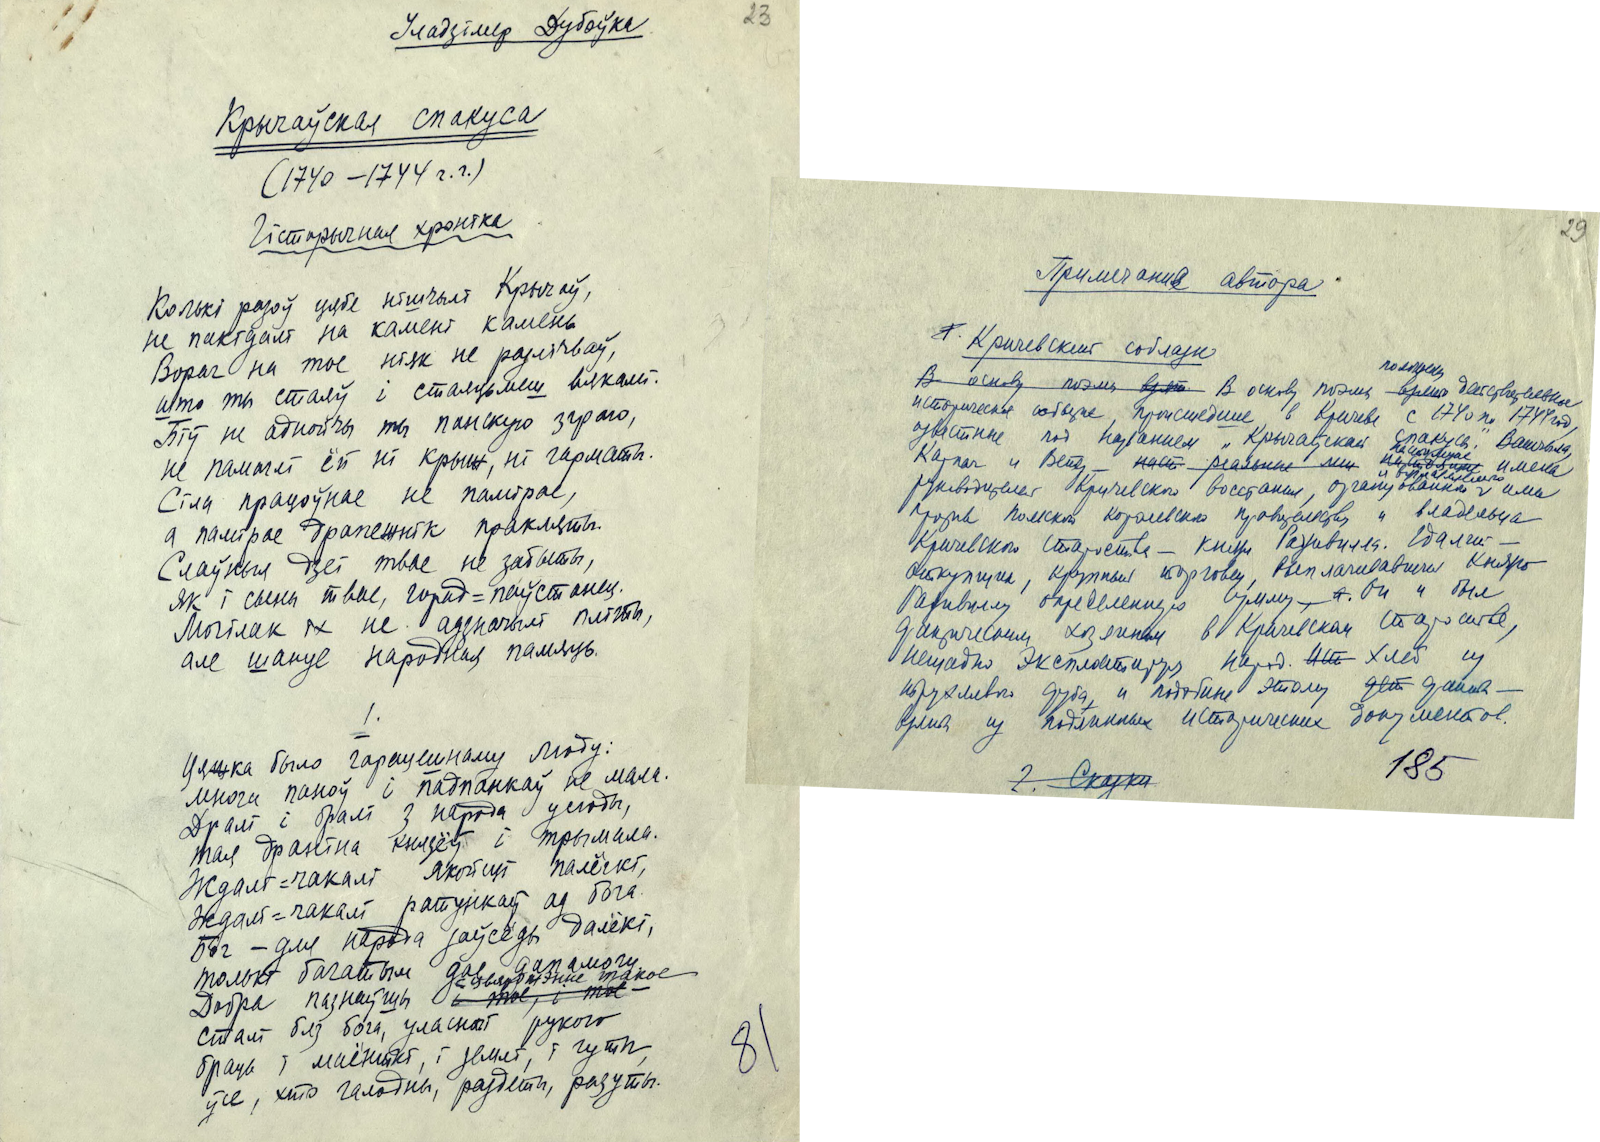 23
Уладзімер Дубоўка
Крычаўская спакуса
(1740 – 1744 г.г.)
Гістарычная хроніка
Колькі разоў цябе нішчылі Крычаў,
не пакідалі на камені камень
Вораг на тое ніяк не разлічваў,
што ты стаяў і стаяцьмеш вякамі.
Біў не аднойчы ты панскую зграю,
не памаглі ёй ні крыж, ні гарматы.
Сіла працоўная не памірае,
а памірае драпежнік пракляты.
Слаўныя дзеі твае не забыты,
як і сыны твае, горад=паўстанец.
Магілак іх не адзначылі пліты,
але шануе народная памяць.
1.
Цяжка было гараецшнаму люду:
многа паноў і падпанкаў не мала.
Дралі і бралі з народа усюды,
тая драніна князёў і трымала.
Ждалі=чакалі якойсці палёгкі,
Ждалі=чакалі ратункаў ад бога.
Бог – для народа заўсёды далёкі,
толькі багатым дае дапамогу
сцвярджэнне такое
Добра пазнаўшы і тое, і тое
сталі без бога, уласнай рукою
браць і маёнткі, і землі, і гуты,
ўсе, хто галодны, раздеты, разуты.
81
29
Примечания автора
1. Кричевский соблазн
положены
В основу поэмы взят В основу поэмы время действительные
исторические события, происшедшие в Кричеве с 1740 по 1744 год,
известные под названием „Крычаўская спакуса". Вашчыла,
настоящие
Карпач и Ветр – наст реальные настоящие имена
и возглавляемого
руководителей Кричевского восстания, организованного ими
против польской королевского правительства и владельца
Кричевского староства – князя Радзивилла. Іцалеі –
откупщик, крупный торговец, выплачивавший князю
Радзивиллу определенную сумму, Он и был
фактическим хозяином в Кричевском старостве,
нещадно эксплоатируя народ. Ист Хлеб из
изтрухлевого дуба, и подобные этому дет факты –
взяты из подлинных исторических документов.
2. Сказки
185